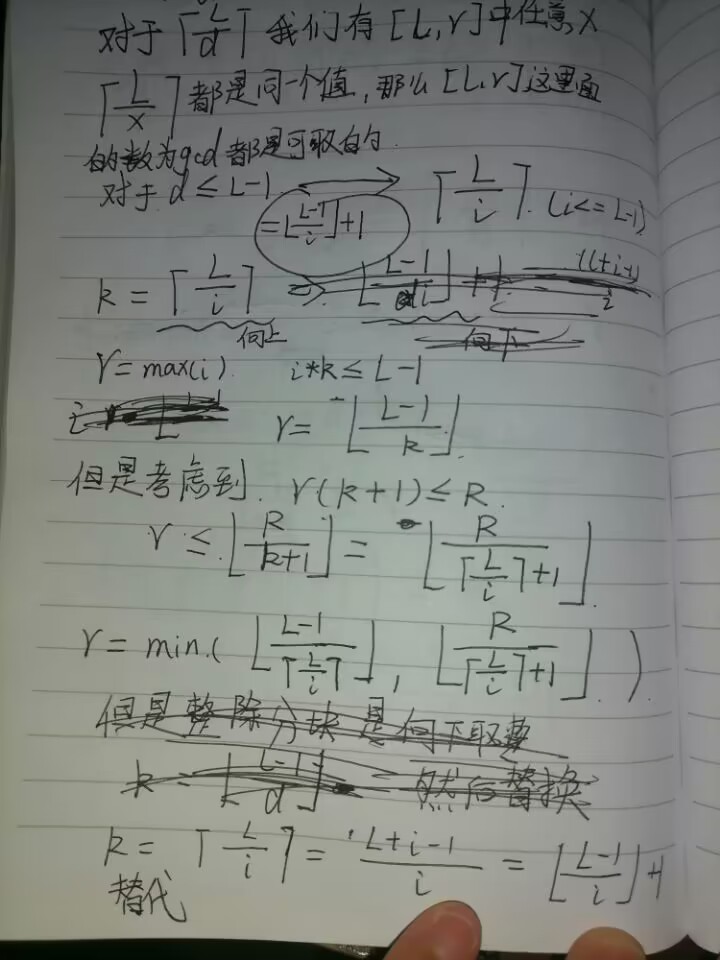 对于⌈L/d⌉ 我们有[L,r]中任意x
⌈L/x⌉都是同一个值,那么[L,r]这里面
的数为gcd都是可取的.
对于 d ≤ L-1 → ⌈L/i⌉. (i<=L-1)
=⌊(L-1)/i⌋+1
k = ⌈L/i⌉ => ⌊(L-1)/i⌋
向上 向下
r=max(i). i*k ≤ L-1
r= ⌊(L-1)/k⌋.
但是考虑到. r(k+1) ≤ R.
r ≤ ⌊R/(k+1)⌋ = ⌊R/(⌈L/i⌉+1)⌋.
r = min.( ⌊(L-1)/⌈L/i⌉⌋, ⌊R/(⌈L/i⌉+1)⌋ ).
但是整除分块是向下取整
k = ⌊(L-1)/d⌋ 然后替换
k = ⌈L/i⌉ = (L+i-1)/i = ⌊(L-1)/i⌋+1
替代